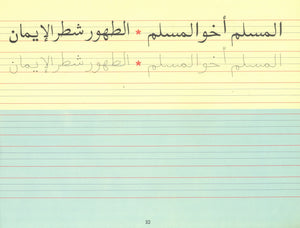 المسلم أخو المسلم * الطهور شطر الإيمان
المسلم أخو المسلم * الطهور شطر الإيمان